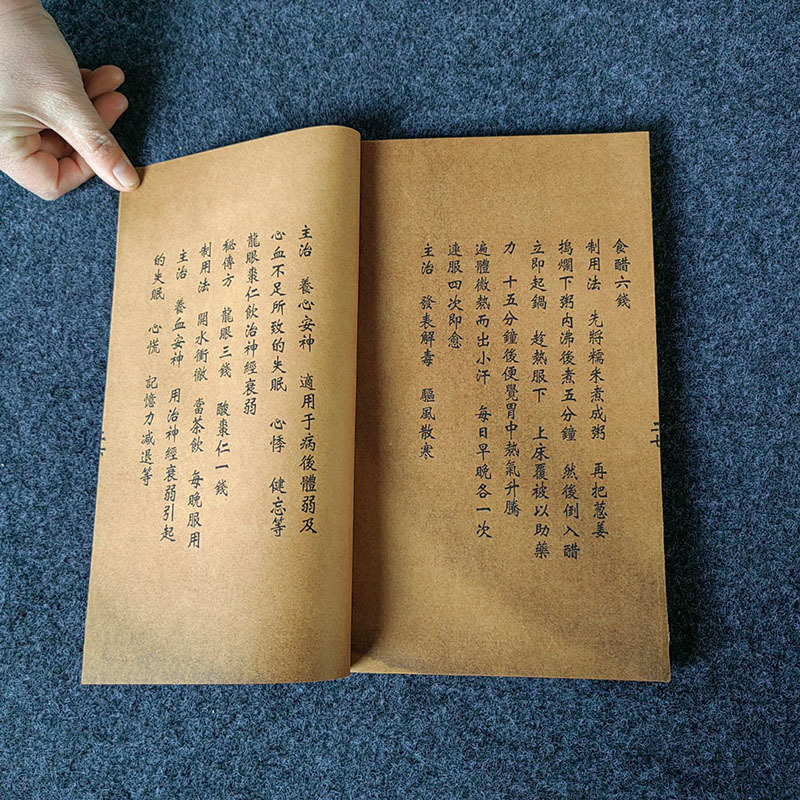 食醋六錢
制用法 先將糯米煮成粥 再把葱姜
搗爛下粥内沸後煮五分鐘 然後倒入醋
立即起鍋 趁熱服下 上床覆被以助藥
力 十五分鐘後便覺胃中熱氣升騰
遍體微熱而出小汗 每日早晚各一次
連服四次即愈
主治 發表解毒 驅風散寒
主治 養心安神 適用于病後體弱及
心血不足所致的失眠 心悸 健忘等
龍眼棗仁飲治神經衰弱
秘傳方 龍眼三錢 酸棗仁一錢
制用法 開水衝徹 當茶飲 每晚服用
主治 養血安神 用治神經衰弱引起
的失眠 心慌 記憶力减退等